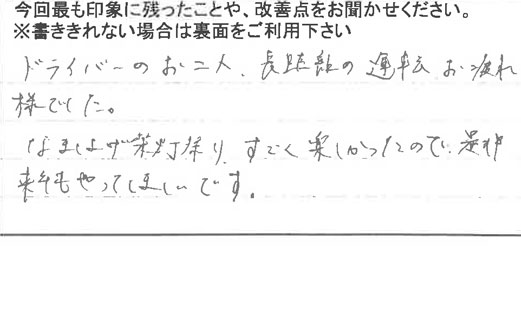 今回最も印象に残ったことや、改善点をお聞かせください。
※書ききれない場合は裏面をご利用下さい
ドライバーのお二人、長距離の運転お疲れ
様でした。
すごく楽しかったので、是非
来年もやってほしいです。